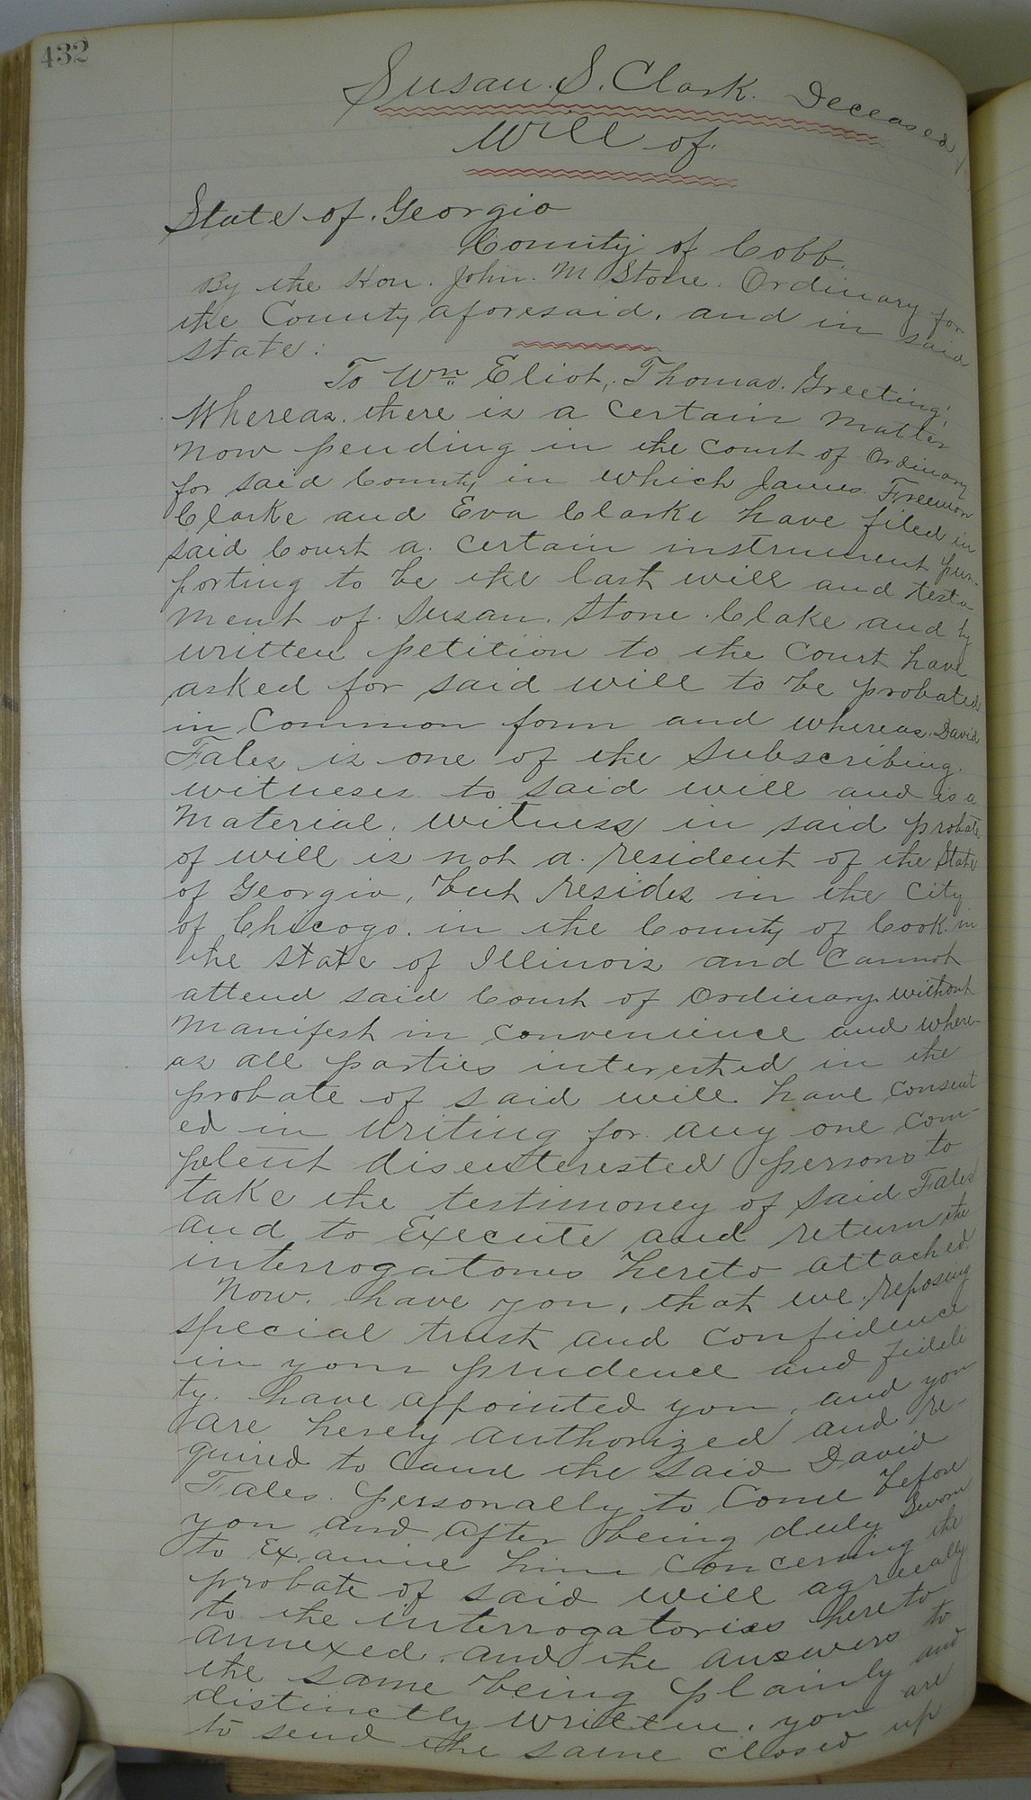 432
Susan. S. Clark. Deceased
Will of.
State of. Georgia
County of Cobb.
By the Hon. John. M Stone. Ordinary for
the County aforesaid, and in said
state:
To Wm Eliot, Thomas. Greeting;
Whereas. there is a certain matter
now pending in the Court of Ordinary
for said County in which James Freemon
Clarke and Eva Clarke have filed in
said Court a. certain instrument pur-
porting to be the last will and testa
ment of. Susan. Stone. Clake and by
written petition to the Court have
asked for said will to be probated
in Common form and whereas. David
Fales is one of the Subscribing.
witneses to said will and is a
Material. witness in said probate
of will is not a. resident of the State
of Georgia, but resides in the City
of Chicogo. in the County of Cook in
the State of Illinois and Cannot
attend said Court of Ordinary. without
manifest in convenience and where-
as all parties interested in the
probate of said will have consent
ed in writing for any one com-
petent disenterested persons to
take the testimoney of said Fales
and to Execute and return the
interrogatories hereto attached.
Now. have you, that we reposing
special trust and confidence
in your prudence and fideli
ty. have appointed you, and you
are hereby authorized and re-
quired to cause the said David
Fales. personally to Come before
you and after being duly Sworn
to Examine him concerning the
probate of said will agreeally
to the interrogatories hereto
annexed. and the answers to
the same being plainly and
distinctly written. you are
to send the same closed up